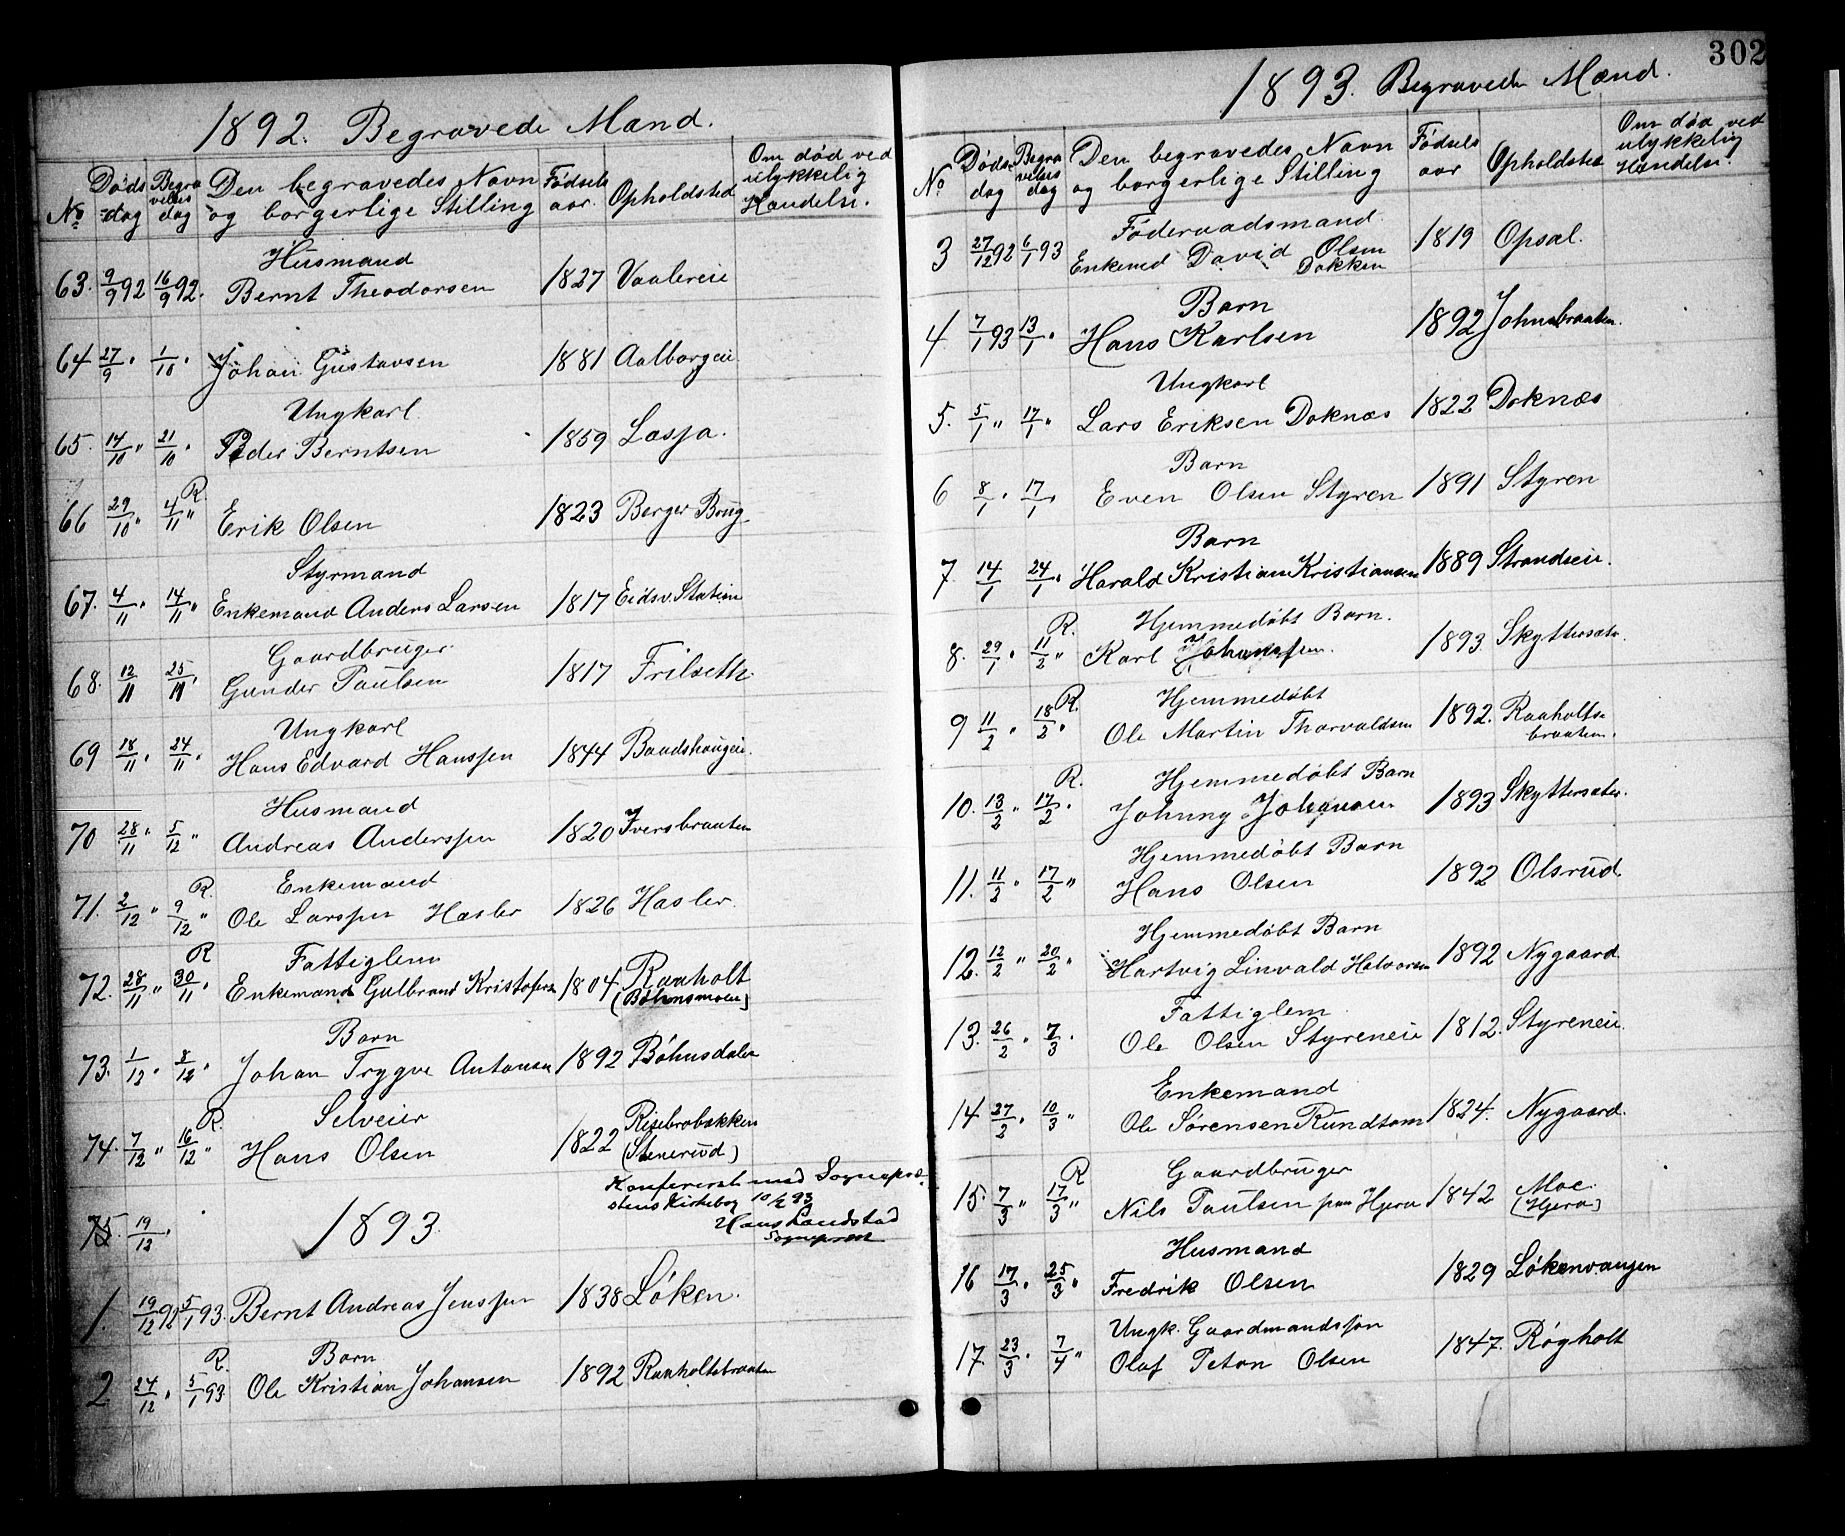 1892. Begravede Mænd.
No Døds dag Begravelses dag Den begravedes Navn og borgerlige Stilling Fødsels aar. Opholdsted Om død ved ulykkelig Hændelse.
Husmand
63. 9/9 92 16/9 92. Bernt Theodorsen 1827 Vaalereie
64 27/9 " 1/10 " Johan Gustavsen 1881 Aalborgeie
Ungkarl
65. 14/10 " 21/10 " Peder Berntsen 1859 Lasja.
R.
66 29/10 " 4/11 " Erik Olsen 1823 Berger Brug
Styrmand
67. 4/11 " 14/11 " Enkemand Anders Larsen 1817 Eidsv. Station
Gaardbruger
68. 12/11 25/11 " Gunder Paulsen 1817 Frilseth
Ungkarl
69 18/11 " 24/11 " Hans Edvard Hanssen 1844 Baadshaugeie.
Husmand
70 28/11 " 5/12 " Andreas Anderssen 1820 Iversbraaten
R. Enkemand
71. 2/12 " 9/12 " Ole Larssen Hasler 1826 Hasler.
R Fattiglem
72. 28/11 " 30/11 " Enkemand Gulbrand Kristofersen 1804 Raaholt
(Bøhnsmoen)
Barn
73. 1/12 " 8/12 " Johan Trygve Antonsen 1892 Bøhnsdalen
R. Selveier
74. 7/12 " 16/12 " Hans Olsen 1822 Risebrobakken
(Stenerud)
Konfereret med Sognepræ-
stens Kirkebog 10/2 93
Hans Landstad
Sogneprest
75. 19/12 "
1893.
1. 19/12 92 5/1 93. Bernt Andreas Jenssen 1838 Løken.
R. Barn
2. 24/12 " 5/1 93 Ole Kristian Johansen 1892 Raaholtsbraaten
302
1893. Begravede Mænd.
No Døds dag Begravelses dag Den begravedes Navn og borgerlige Stilling Fødsels aar Opholdsted Om død ved ulykkelig Hændelse.
Føderaadsmand
3 27/12 92 6/1 93 Enkemd David Olsen Dokken 1819 Opsal.
Barn
4. 7/1 93 13/1 " Hans Karlsen 1892 Johnsbraaten.
Ungkarl
5. 5/1 " 17/1 " Lars Eriksen Doknæs 1822 Doknæs
Barn
6 8/1 " 17/1 " Even Olsen Styren 1891 Styren
Barn
7. 14/1 24/1 " Harald Kristian Kristiansen 1889 Strandseie.
R. Hjemmedøbt Barn.
8. 29/1 " 11/2 " Karl Johansen. 1893. Skyttersæter.
R. Hjemmedøbt
9 11/2 " 18/2 " Ole Martin Thorvaldsen 1892. Raaholts-
braaten.
R. Hjemmedøbt Barn
10. 13/2 " 17/2 " Johnny Johansen 1893 Skyttersæter.
Hjemmedøbt Barn
11. 11/2 " 17/2 " Hans Olsen 1892 Olsrud.
Hjemmedøbt Barn
12. 12/2 " 20/2 " Hartvig Linvald Halvorsen 1892 Nygaard
Fattiglem
13. 26/2 " 7/3 " Ole Olsen Styreneie 1812. Styreneie.
Enkemand
14 27/2 " 10/3 " Ole Sørensen Rundtom 1824. Nygaard.
R Gaardbruger
15. 7/3 " 17/3 " Nils Paulsen paa Hjera 1842 Moe.
(Hjera)
Husmand
16 17/3 " 25/3 " Fredrik Olsen 1829 Løkenvangen
Ungk. Gaardmandssøn
17. 23/3 " 7/4 " Olaf Peton Olsen 1847. Røgholt